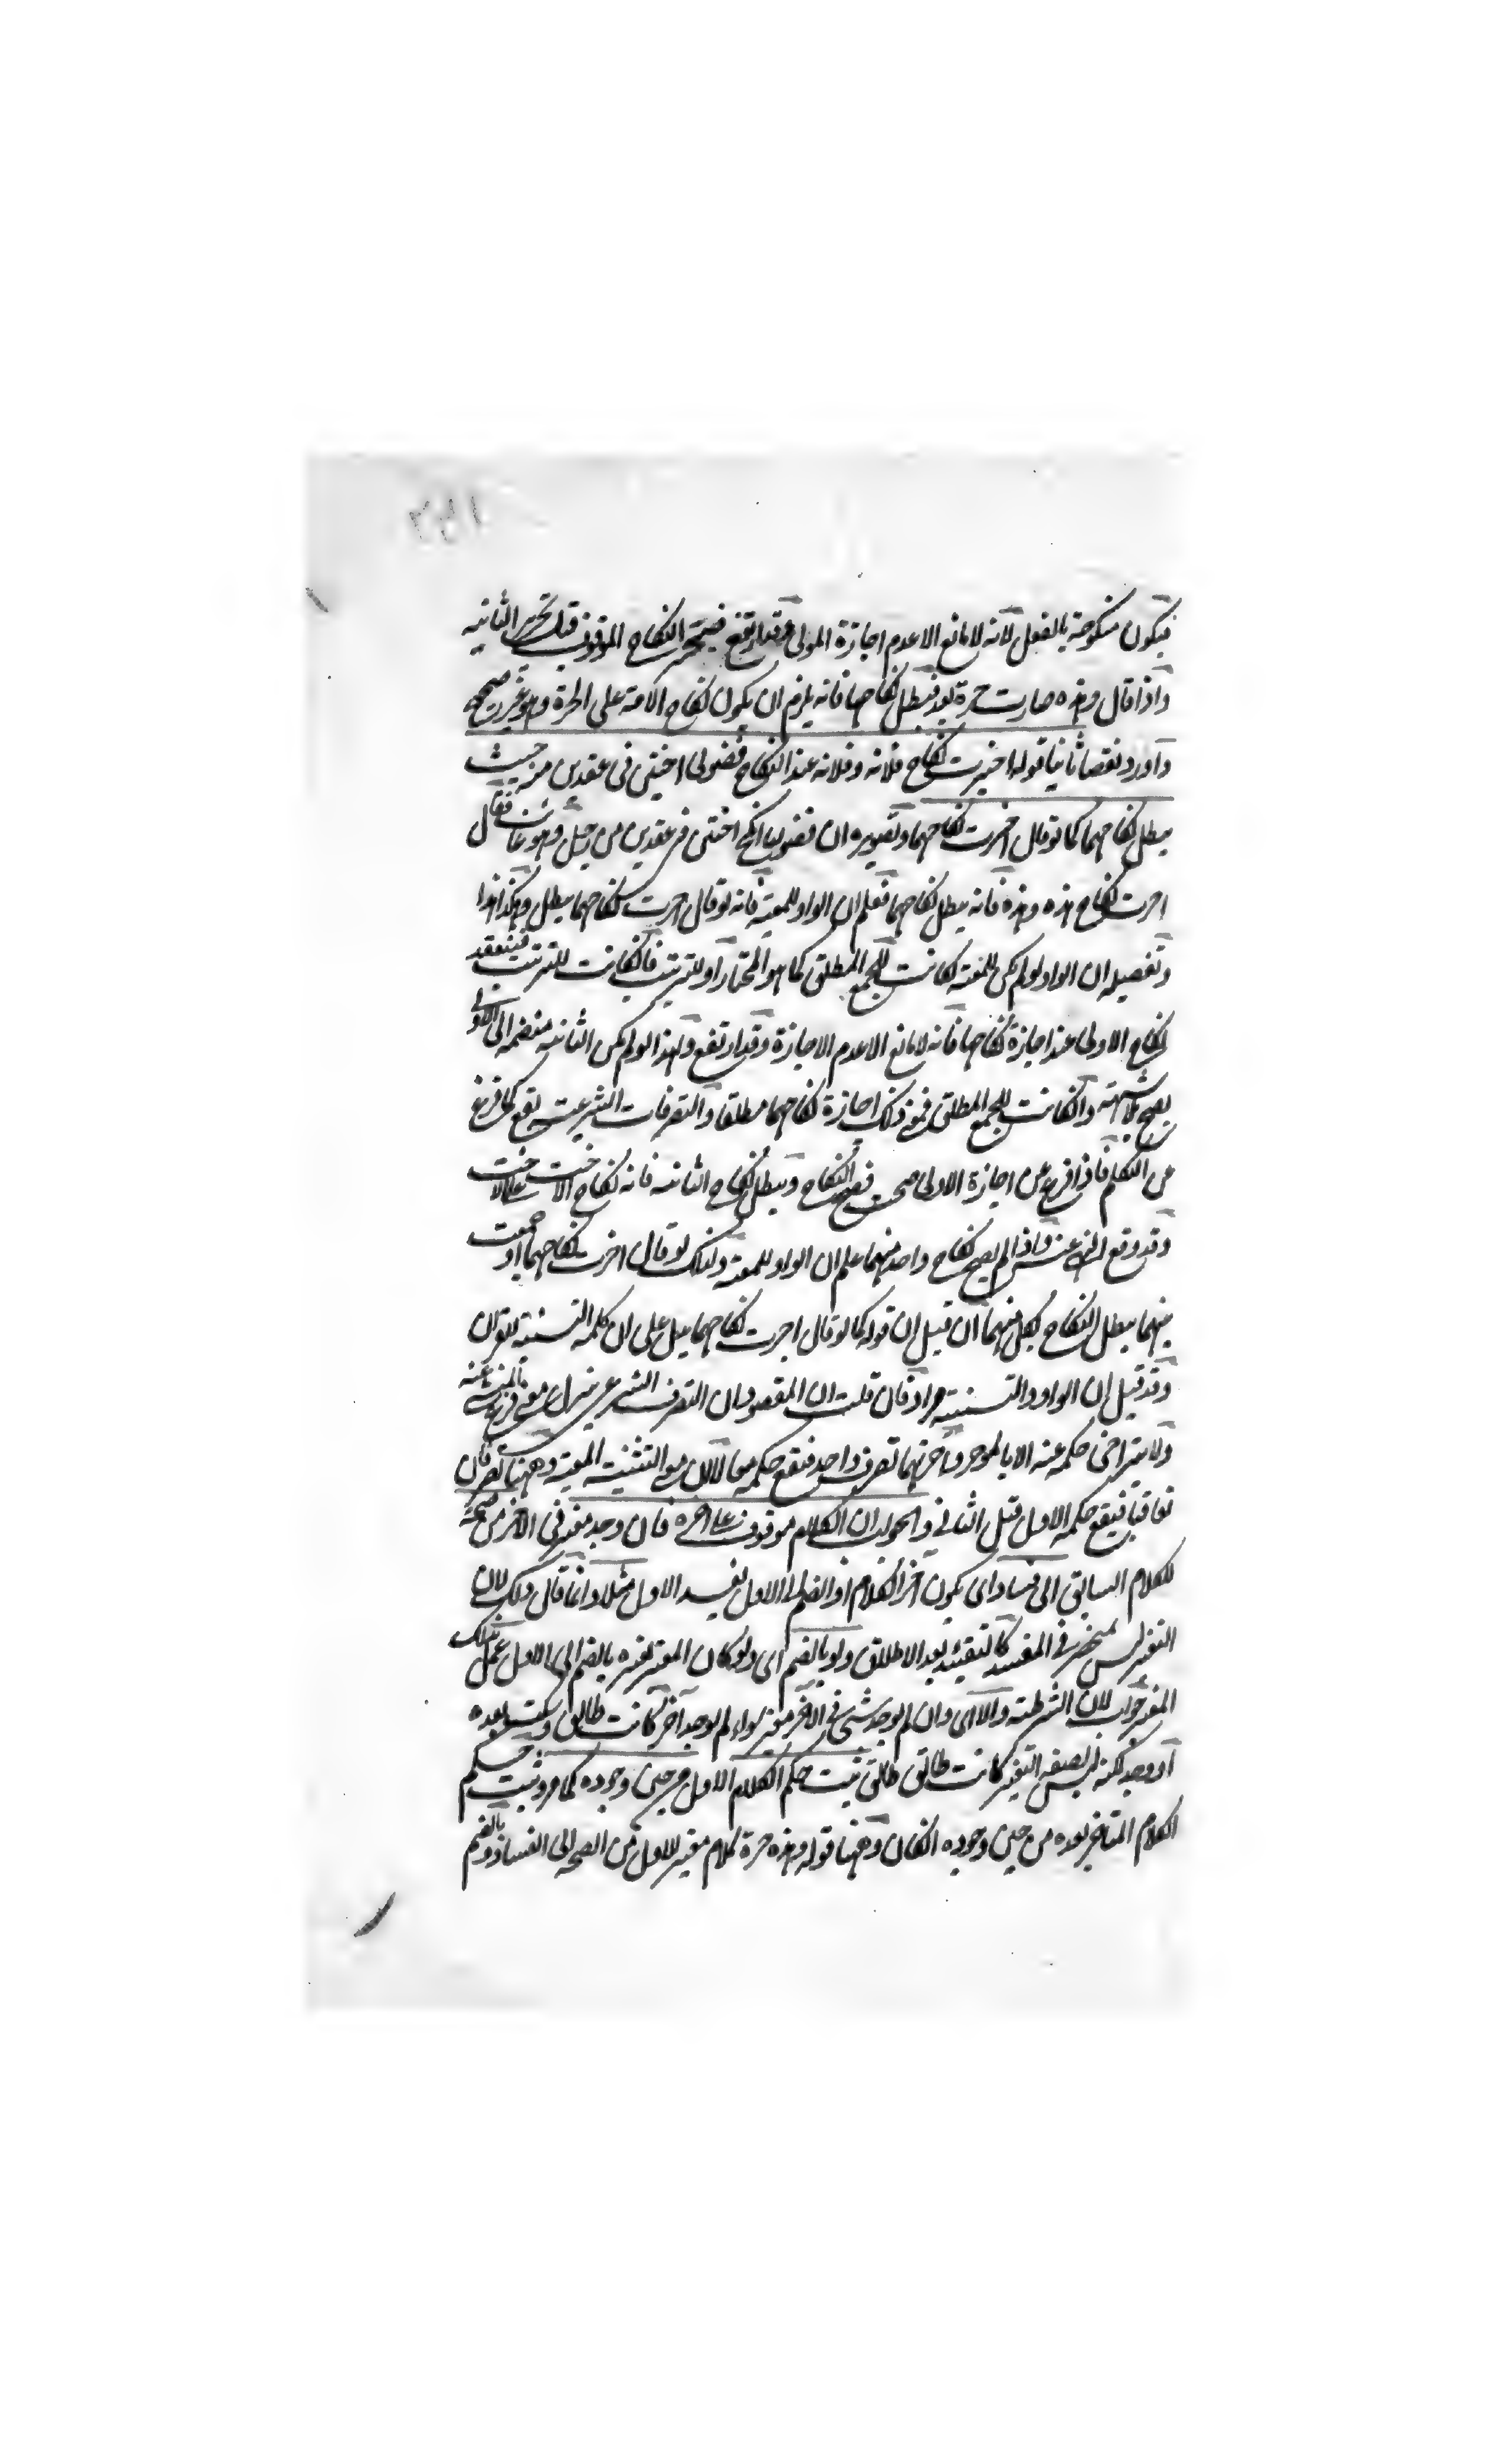 فيكون منكوحة بالفعل لانه لا مانع الا عدم اجازة المولى وقد ارتفع فيصح النكاح الموقوف قبل تحرير الثانية
واذا قال وهذه صارت حرة بعد فبطل نكاحها فانه يلزم ان يكون نكاح الامة على الحرة وهو غير صحيح
واورد نقضا ثانيا قوله اجزت نكاح فلانة وفلانة عند انكاح فضولى اختين فى عقدين من حيث
يبطل نكاحهما كما لو قال اجزت نكاحهما وتصويره ان فضوليا انكح اختين فى عقدين من رجل وهو غائب فقال
اجزت نكاح هذه وهذه فانه يبطل نكاحهما فعلم ان الواو للمعية فانه لو قال اجزت نكاحهما يبطل وهكذا هذا
وتفصيله ان الواو لو لم يكن للمعية لكانت للجمع المطلق كما هو المختار او للترتيب فان كانت للترتيب فينعقد
نكاح الاولى عند اجازة نكاحها فانه لا مانع الا عدم الاجازة وقد ارتفع ولهذا لو لم يكن الثانية منضمة الى الاولى
يصح بلا شبهة وان كانت للجمع المطلق فمع ذلك اجازة نكاحهما مطلقا والتصرفات الشرعية يقع كما فرغ
عن التكلم فاذا فرغ عن اجازة الاولى صحت فصح النكاح ويبطل نكاح الثانية فانه نكاح الاخت على الاخت
وقد وقع النهى عنه واذا لم يصح نكاح واحد منهما علم ان الواو للمعية ولذلك لو قال اجزت نكاحهما او جمعت
بينهما يبطل النكاح لكل منهما ان قيل ان قوله كما لو قال اجزت نكاحهما يدل على ان كلمة التثنية للقران
وقد قيل ان الواو والتثنية فان قلت ان المقصود ان التصرف الشرعى ينزل فرغ عنه
ولا يتراخى حكمه عنه الا بالموجر و اجزتهما تصرف واحد فيقع حكمه معا لان معنى التثنية المعية وههنا تصرفان
تعاقبا فيقع حكمه الاول قبل الثانى والجواب ان الكلام موقوف على اخره فان وجد مغير فى الاخر من صحة
الكلام السابق الى فساد اى يكون آخر الكلام اذا انضم الى الاول يفسد الاول مثلا وانما قال ذلك لان
التغير ليس بمنحصر فى المفسد كالتقييد بعد الاطلاق ولو بالضم اى ولو كان المغير تغيره بالضم الى الاول عمل بذلك
المغير جواب لان الشرطية والا اى وان لم يوجد شئ فى الآخر مغير سواء لم يوجد آخر كانت طالق وسكت بعده
او وجد لكنه ليس بصفة التغير كانت طالق طالق ثبت حكم الكلام الاول من حين وجوده كما مر وثبت حكم
الكلام المتاخر بعده من حين وجوده ان كان وههنا قوله وهذه حرة كلام مغير للاول من الصحة الى الفساد بالضم